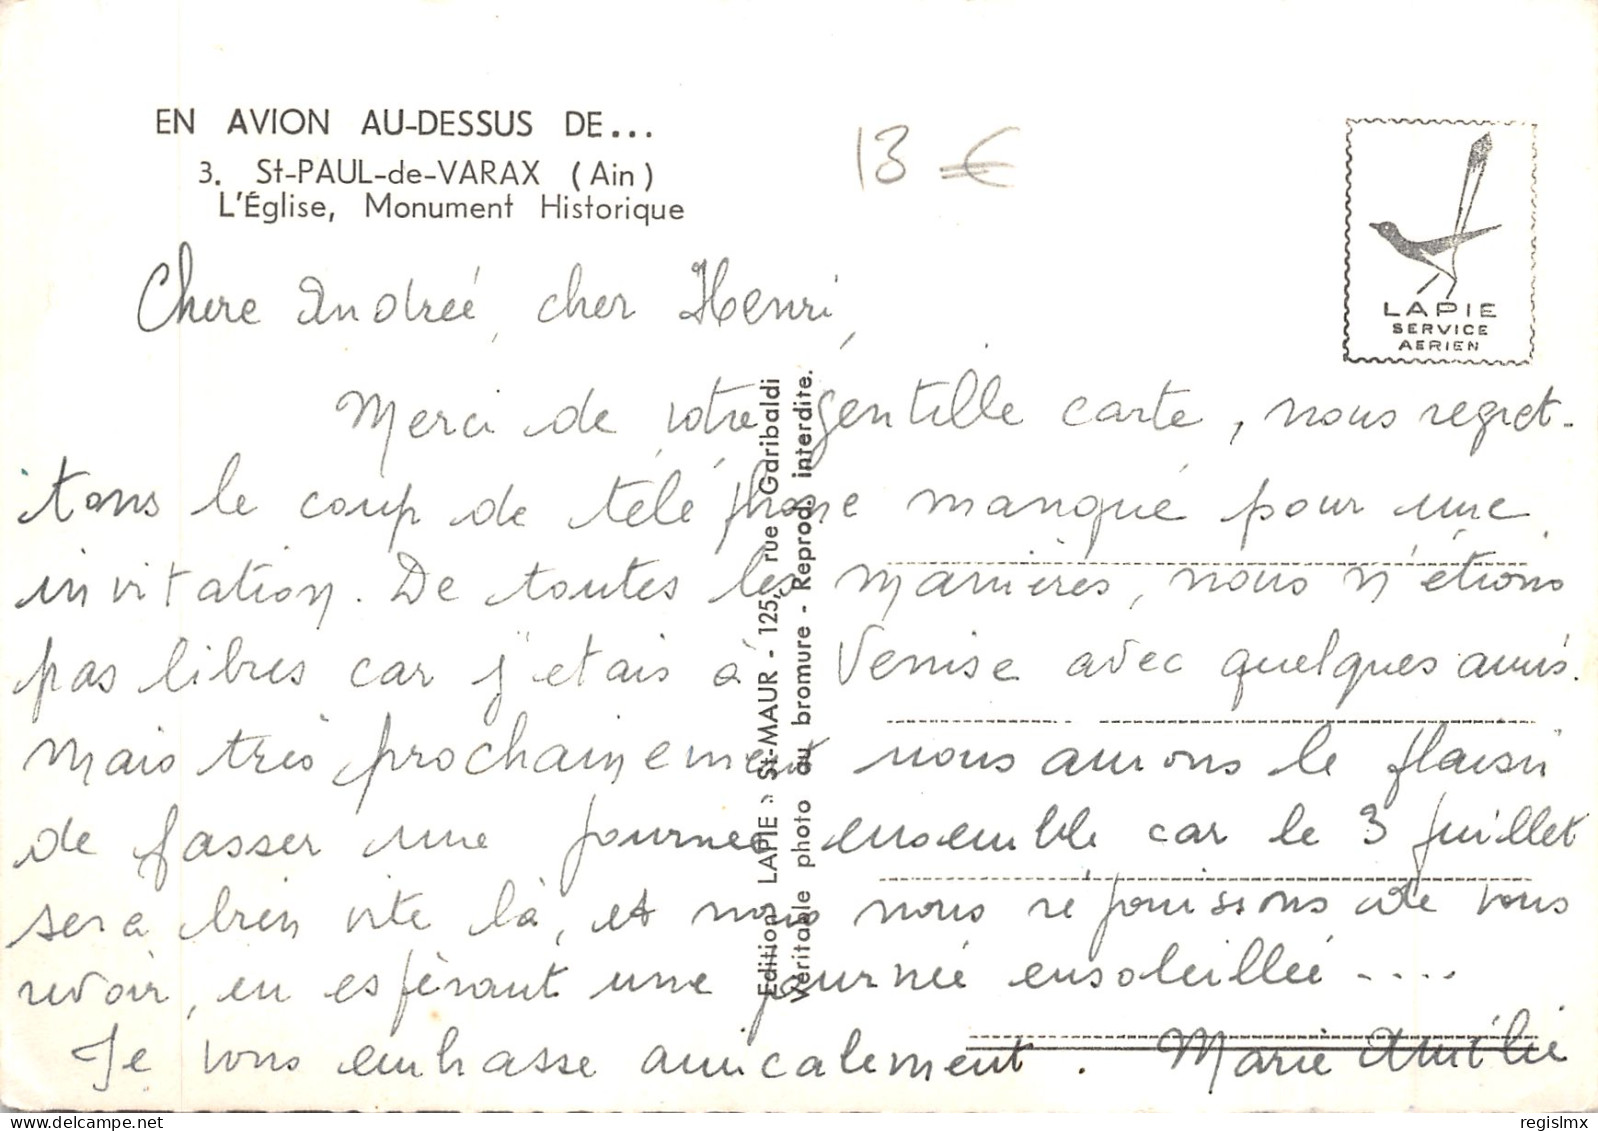 EN AVION AU-DESSUS DE...
3. St-PAUL-de-VARAX (Ain)
L'Église, Monument Historique
13 €
LAPIE
SERVICE
AERIEN
Chere Andrée, cher Henri,
Merci de votre gentille carte, nous regret-
tons le coup de téléphone manqué pour une
invitation. De toutes les manières, nous n'étions
pas libres car j'etais à Venise avec quelques amis.
Mais très prochainement nous aurons le plaisir
de passer une journee ensemble car le 3 juillet
sera bien vite là, et nous nous réjouissons de vous
revoir, en espérant une journée ensoleillée ....
Je vous embrasse amicalement. Marie Amélie
Edition « LAPIE » St-MAUR - 125, rue Garibaldi
Véritable photo au bromure - Reprod. interdite.
regislmx